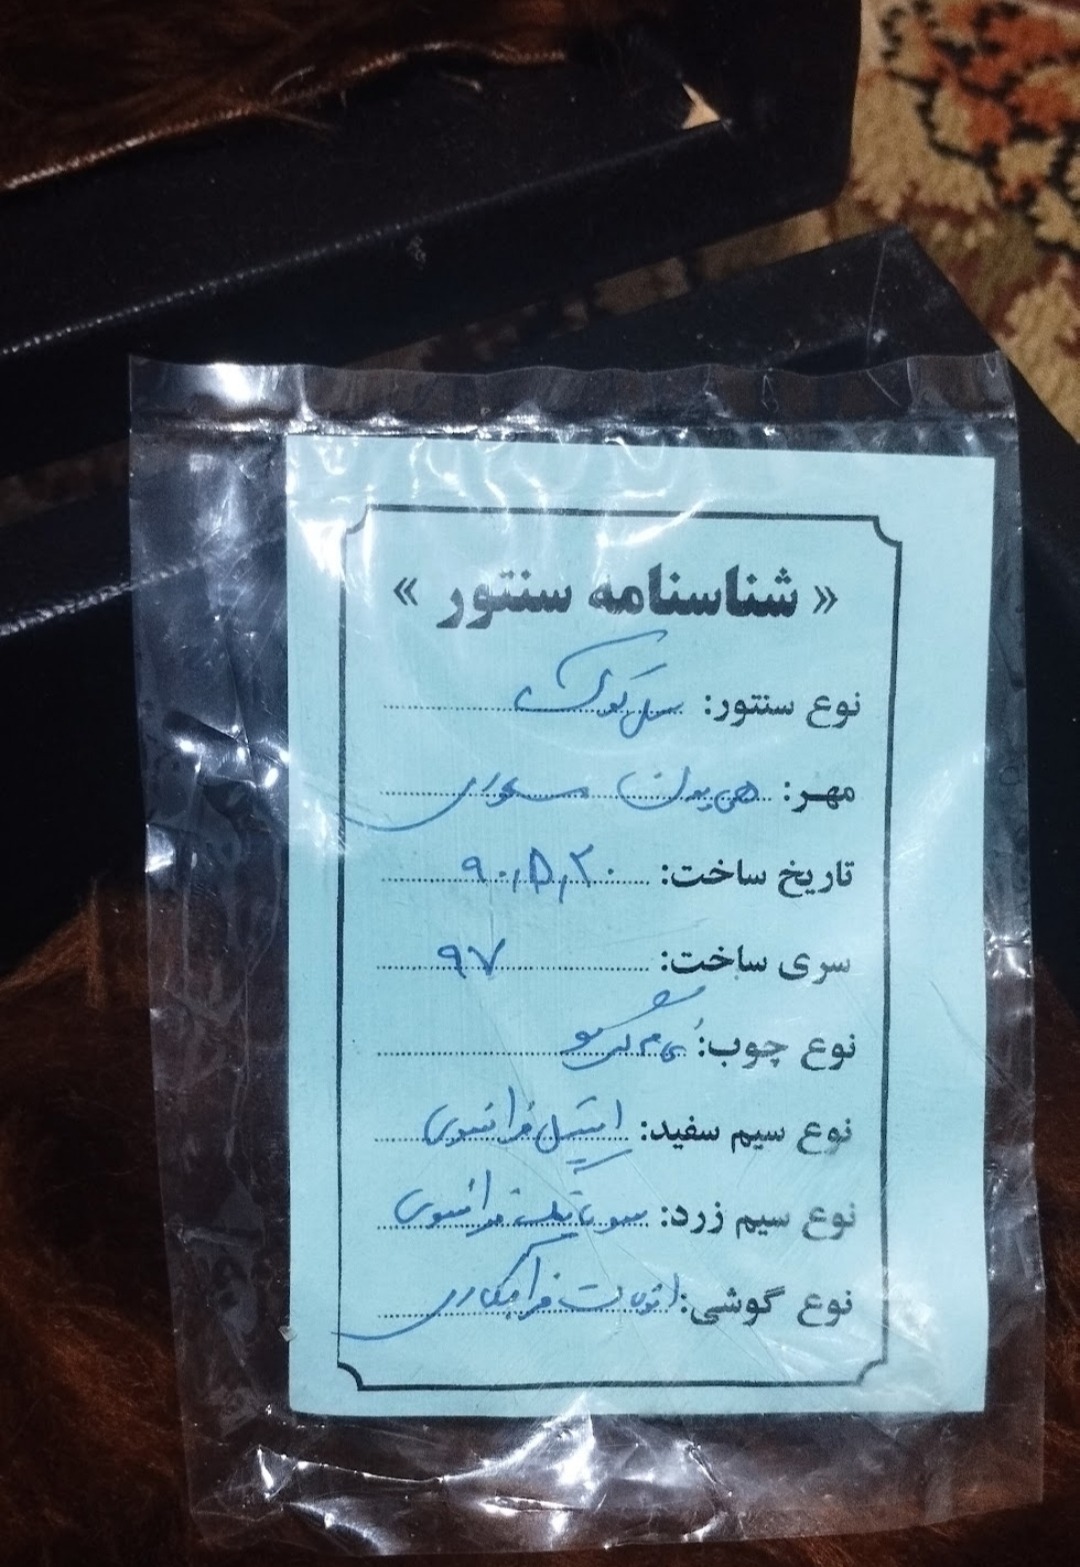 « شناسنامه سنتور »
نوع سنتور: سل کوک
مهر: همایون مسعودی
تاریخ ساخت: ۹۰،۵،۲۰
سری ساخت: ۹۷
نوع چوب: گردو
نوع سیم سفید: استیل فرانسوی
نوع سیم زرد: فرانسوی
نوع گوشی: اتومات آبکاری